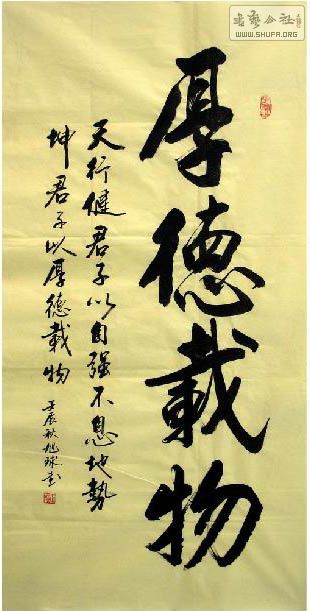 书艺公社
WWW.SHUFA.ORG
厚德载物
天行健君子以自强不息地勢
坤君子以厚德载物
壬辰秋旭珠书